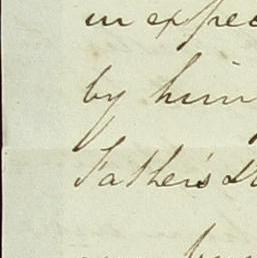 in expec
by him
Father's